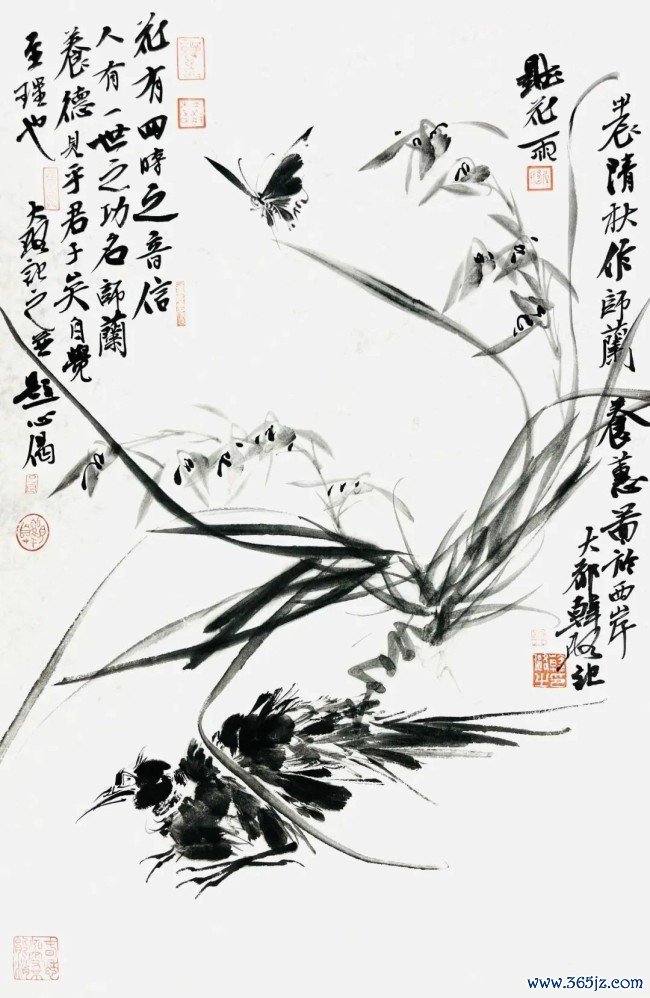 秋作師蘭養蕙圖於西岸
大都韓記
花雨
花有四時之音信
人有一世之功名師蘭
養德見乎君子矣自覺
至理也
大記之並題心偈
www.365jz.com